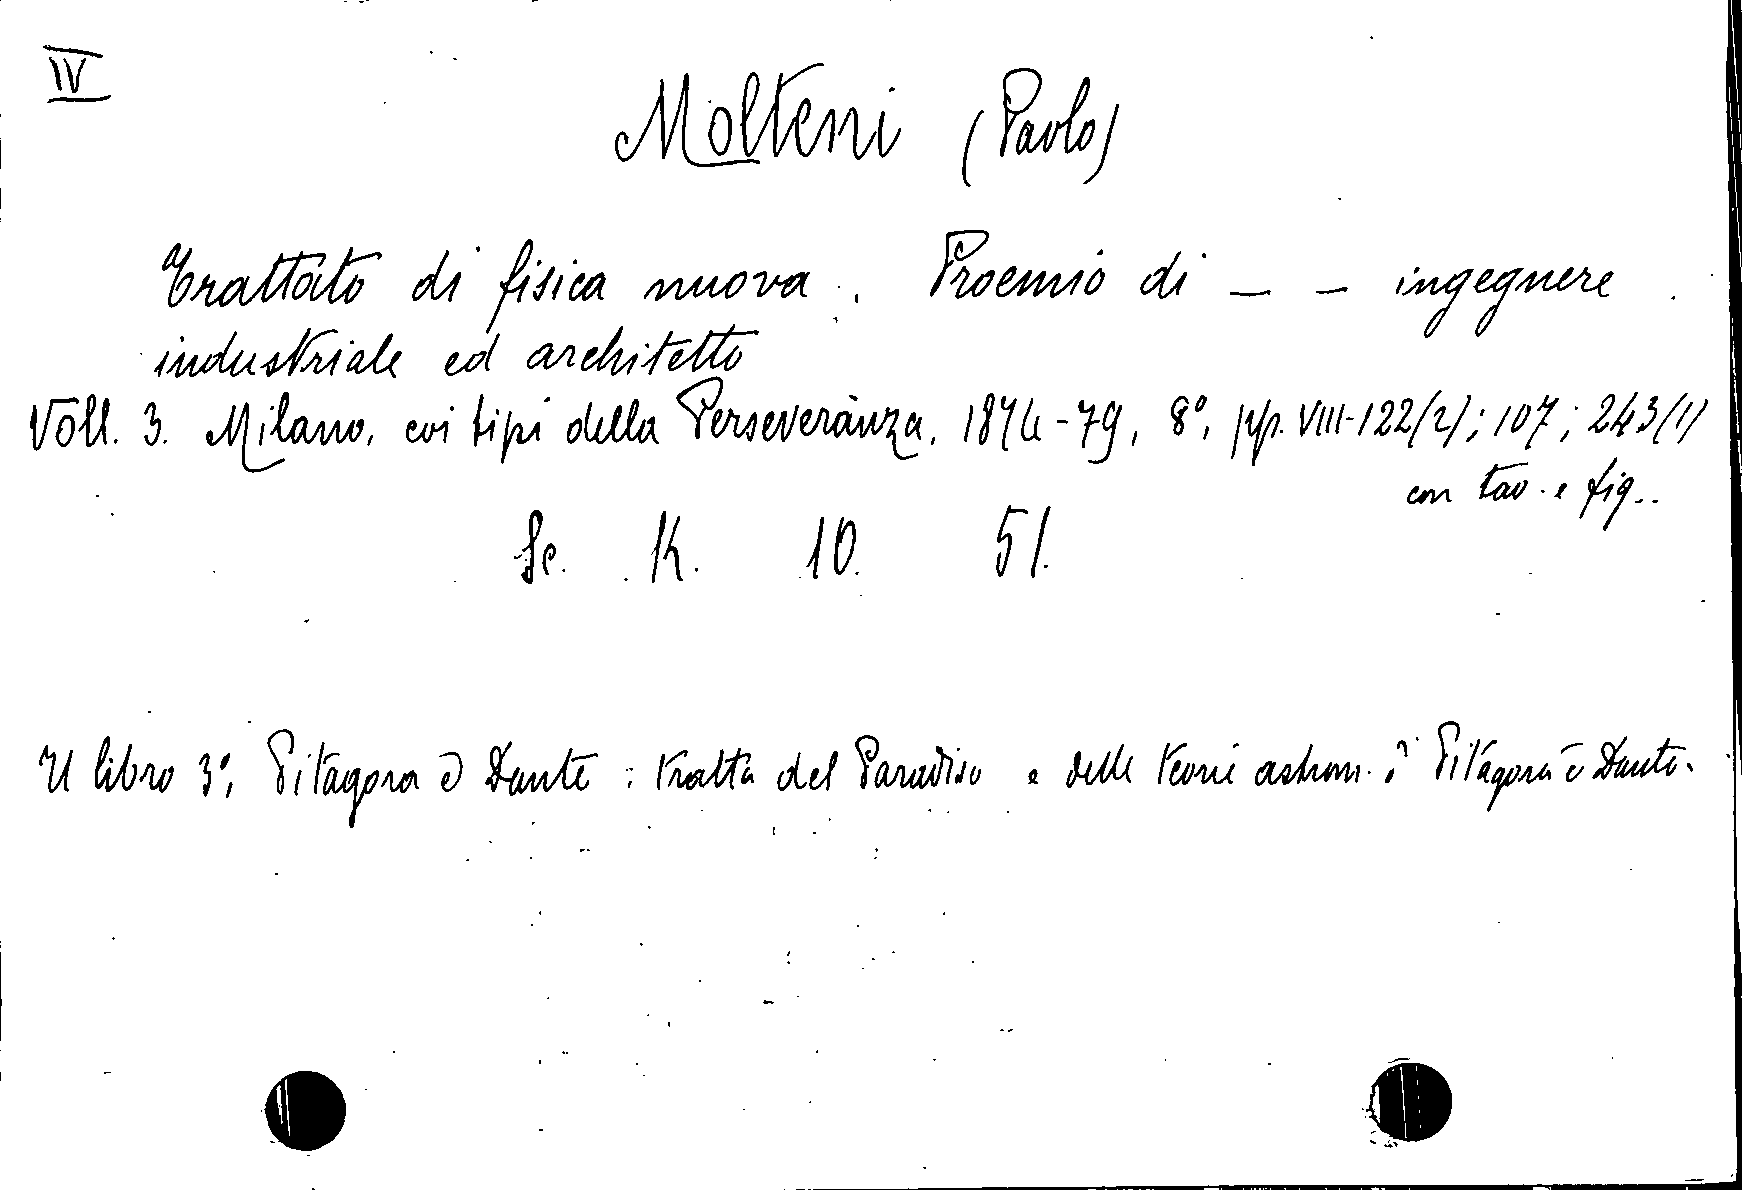 IV
Molteni (Paolo)
Trattato di fisica nuova. Proemio di — — ingegnere
industriale ed architetto
Voll. 3. Milano, coi tipi della Perseveranza, 1874-79, 8°, pp. VIII-122(2); 107; 243(1)
con tav. e fig..
Sc. K. 10. 51.
Il libro 3°, Pitagora e Dante: tratta del Paradiso e delle teorie astron. di Pitagora e Dante.